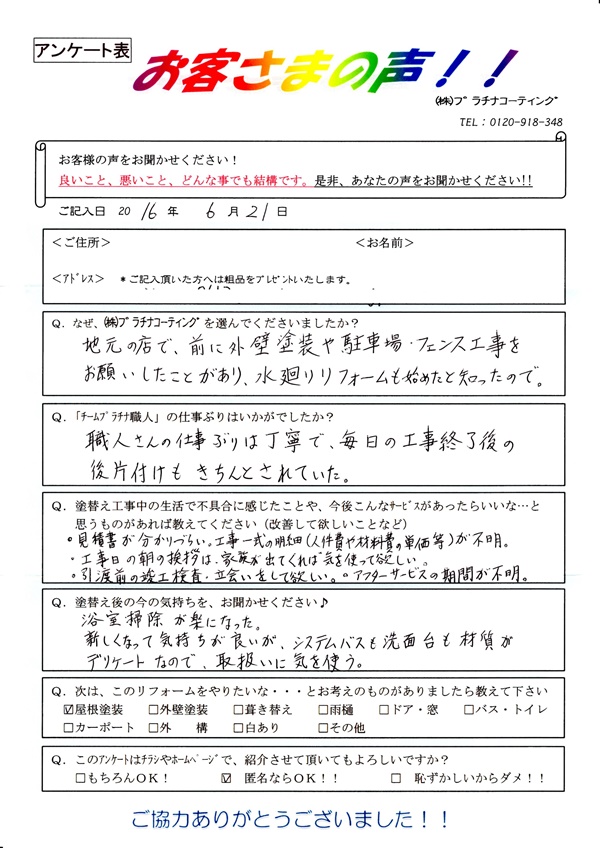 アンケート表
お客さまの声！！
㈱プラチナコーティング
TEL：0120-918-348
お客様の声をお聞かせください！
良いこと、悪いこと、どんな事でも結構です。是非、あなたの声をお聞かせください!!
ご記入日 2016年 6月21日
＜ご住所＞ ＜お名前＞
＜アドレス＞ ＊ご記入頂いた方へは粗品をプレゼントいたします。
Q．なぜ、㈱プラチナコーティングを選んでくださいましたか？
地元の店で、前に外壁塗装や駐車場・フェンス工事を
お願いしたことがあり、水廻りリフォームも始めたと知ったので。
Q．「チームプラチナ職人」の仕事ぶりはいかがでしたか？
職人さんの仕事ぶりは丁寧で、毎日の工事終了後の
後片付けもきちんとされていた。
Q．塗替え工事中の生活で不具合に感じたことや、今後こんなサービスがあったらいいな…と
思うものがあれば教えてください（改善して欲しいことなど）
・見積書が分かりづらい。工事一式の明細（人件費や材料費の単価等）が不明。
・工事日の朝の挨拶は、家族が出てくれば気を使って欲しい。
・引渡前の竣工検査・立会いをして欲しい。・アフターサービスの期間が不明。
Q．塗替え後の今の気持ちを、お聞かせください♪
浴室掃除が楽になった。
新しくなって気持ちが良いが、システムバスも洗面台も材質が
デリケートなので、取扱いに気を使う。
Q．次は、このリフォームをやりたいな・・・とお考えのものがありましたら教えて下さい
☑屋根塗装 □外壁塗装 □葺き替え □雨樋 □ドア・窓 □バス・トイレ
□カーポート □外　構 □白あり □その他
Q．このアンケートはチラシやホームページで、紹介させて頂いてもよろしいですか？
□もちろんOK！ ☑ 匿名ならOK！！ □ 恥ずかしいからダメ！！
ご協力ありがとうございました！！